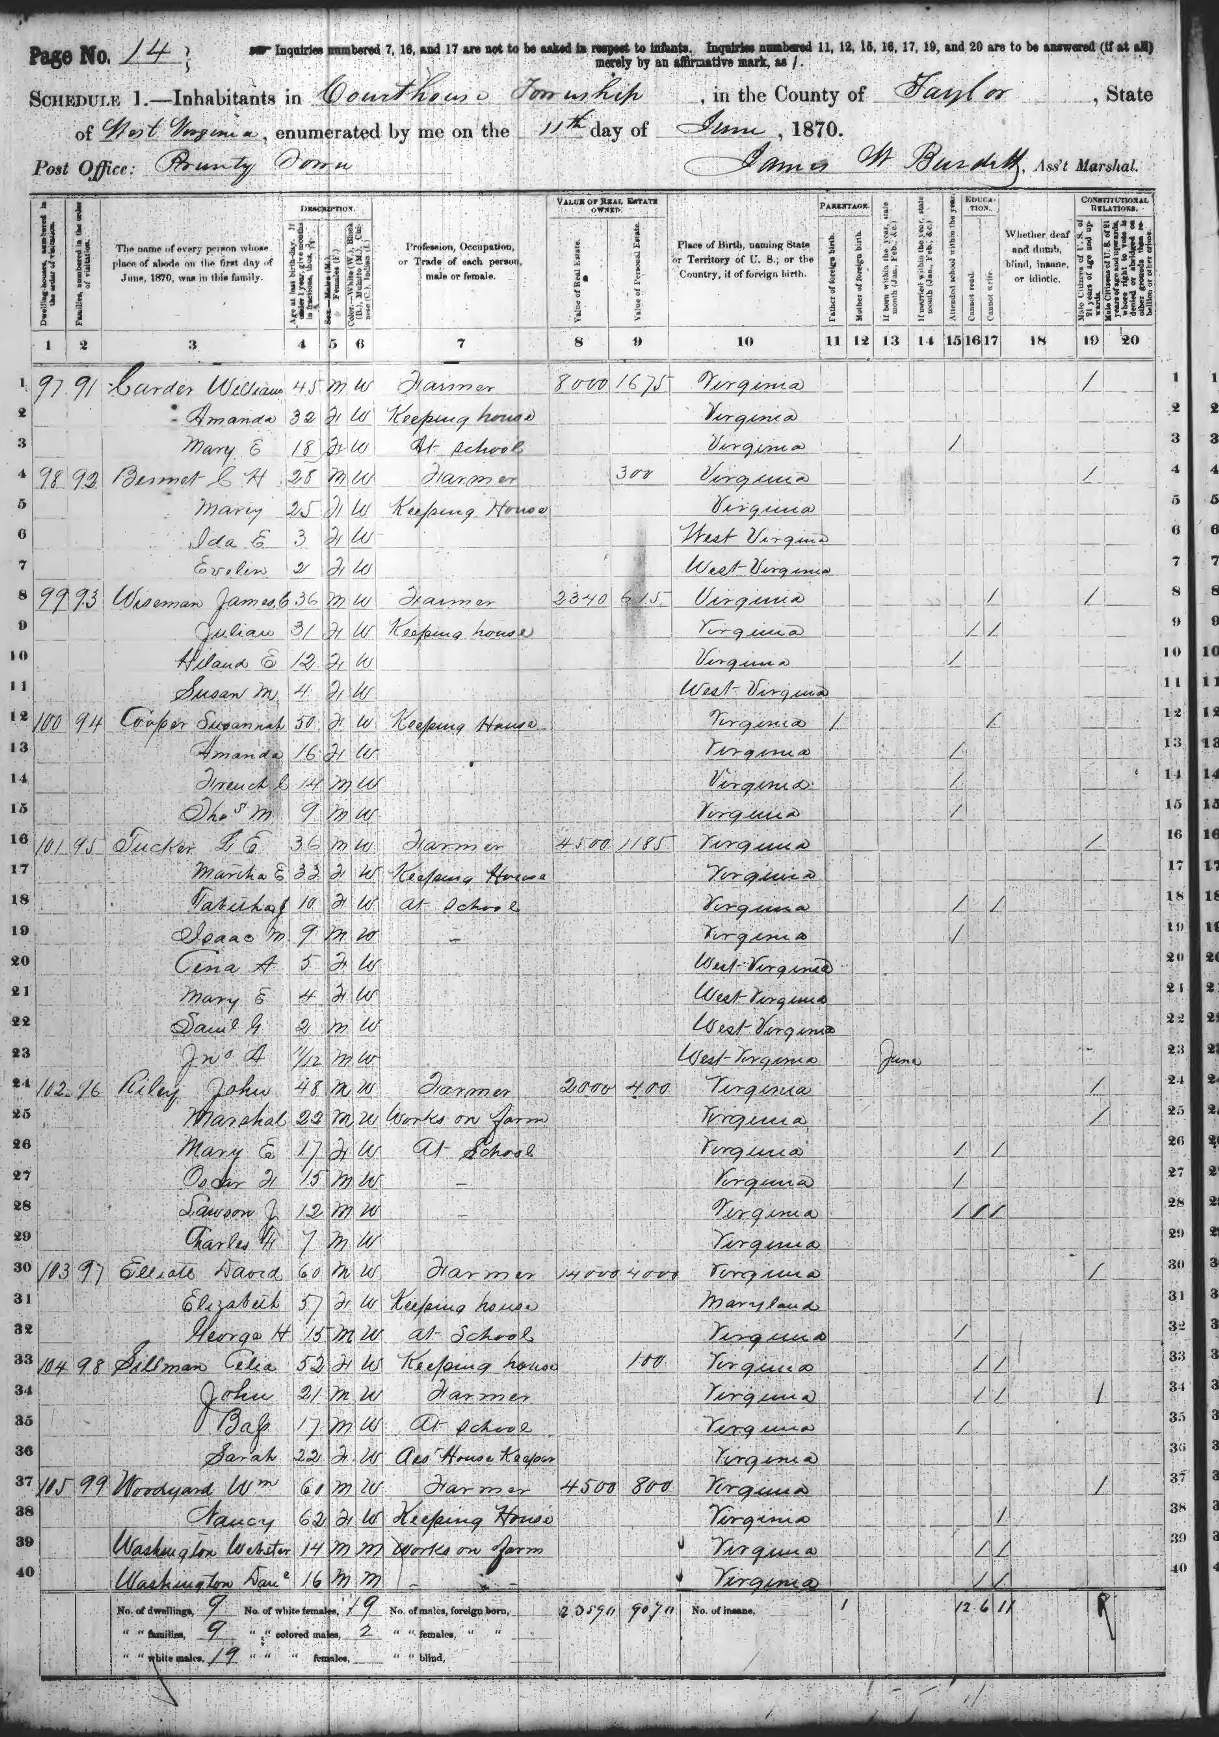 Page No. 14
Inquiries numbered 7, 16, and 17 are not to be asked in respect to infants. Inquiries numbered 11, 12, 15, 16, 17, 19, and 20 are to be answered (if at all)
merely by an affirmative mark, as /.
SCHEDULE 1.—Inhabitants in Courthouse Township, in the County of Taylor, State
of West Virginia, enumerated by me on the 11th day of June, 1870.
Post Office: Prunty Town James W Burdett, Ass't Marshal.
DESCRIPTION. VALUE OF REAL ESTATE OWNED. PARENTAGE. EDUCATION. CONSTITUTIONAL RELATIONS.
Dwelling-houses, numbered in the order of visitation.
Families, numbered in the order of visitation.
The name of every person whose place of abode on the first day of June, 1870, was in this family.
Profession, Occupation, or Trade of each person, male or female.
Value of Real Estate.
Value of Personal Estate.
Place of Birth, naming State or Territory of U. S.; or the Country, if of foreign birth.
Father of foreign birth.
Mother of foreign birth.
If born within the year, state month (Jan., Feb., &c.)
If married within the year, state month (Jan., Feb., &c.)
Attended school within the year.
Cannot read.
Cannot write.
Whether deaf and dumb, blind, insane, or idiotic.
1 2 3 4 5 6 7 8 9 10 11 12 13 14 15 16 17 18 19 20
1 97 91 Carder William 45 M W Farmer 8000 1675 Virginia / 1
2 Amanda 32 F W Keeping house Virginia 2
3 Mary E 18 F W At School Virginia / 3
4 98 92 C H 28 M W Farmer 300 Virginia / 4
5 Mary 25 F W Keeping House Virginia 5
6 Ida E 3 F W West Virginia 6
7 Evolin 2 F W West Virginia 7
8 99 93 Wiseman James C 36 M W Farmer 2340 615 Virginia / / 8
9 Julian 31 F W Keeping house Virginia / / 9
10 E 12 F W Virginia / 10
11 Susan M 4 F W West Virginia 11
12 100 94 Cooper Susannah 50 F W Keeping House Virginia / / 12
13 Amanda 16 F W Virginia / 13
14 French C 14 M W Virginia / 14
15 Thos M 9 M W Virginia / 15
16 101 95 Tucker E 36 M W Farmer 4500 1185 Virginia / 16
17 Martha E 33 F W Keeping House Virginia 17
18 Tabitha J 10 F W At School Virginia / / 18
19 Isaac M 9 M W - Virginia / 19
20 A 5 F W West Virginia 20
21 Mary E 4 F W West Virginia 21
22 Saml G 2 M W West Virginia 22
23 Jno A 11/12 M W West Virginia June 23
24 102 96 Riley John 48 M W Farmer 2000 400 Virginia / 24
25 Marshal 22 M W Works on farm Virginia / 25
26 Mary E 17 F W At School Virginia / / 26
27 Oscar F 15 M W - Virginia / 27
28 Lawson J 12 M W - Virginia / / / 28
29 Charles F 7 M W Virginia 29
30 103 97 Elliott David 60 M W Farmer 14000 4000 Virginia / 30
31 Elizabeth 57 F W Keeping house Maryland 31
32 George H 15 M W At School Virginia / 32
33 104 98 Celia 52 F W Keeping house 100 Virginia / / 33
34 John 21 M W Farmer Virginia / / / 34
35 17 M W At School Virginia / 35
36 Sarah 22 F W House Keeper Virginia 36
37 105 99 Woodyard Wm 60 M W Farmer 4500 800 Virginia / 37
38 Nancy 62 F W Keeping House Virginia / 38
39 Washington Webster 14 M M Works on farm Virginia / / 39
40 Washington Danl 16 M M - - - Virginia / / 40
No. of dwellings, 9 No. of white females, 19 No. of males, foreign born, No. of insane, 1 12 6 11
" " families, 9 " " colored males, 2 " " females, " "
" " white males, 19 " " " females, " " blind,